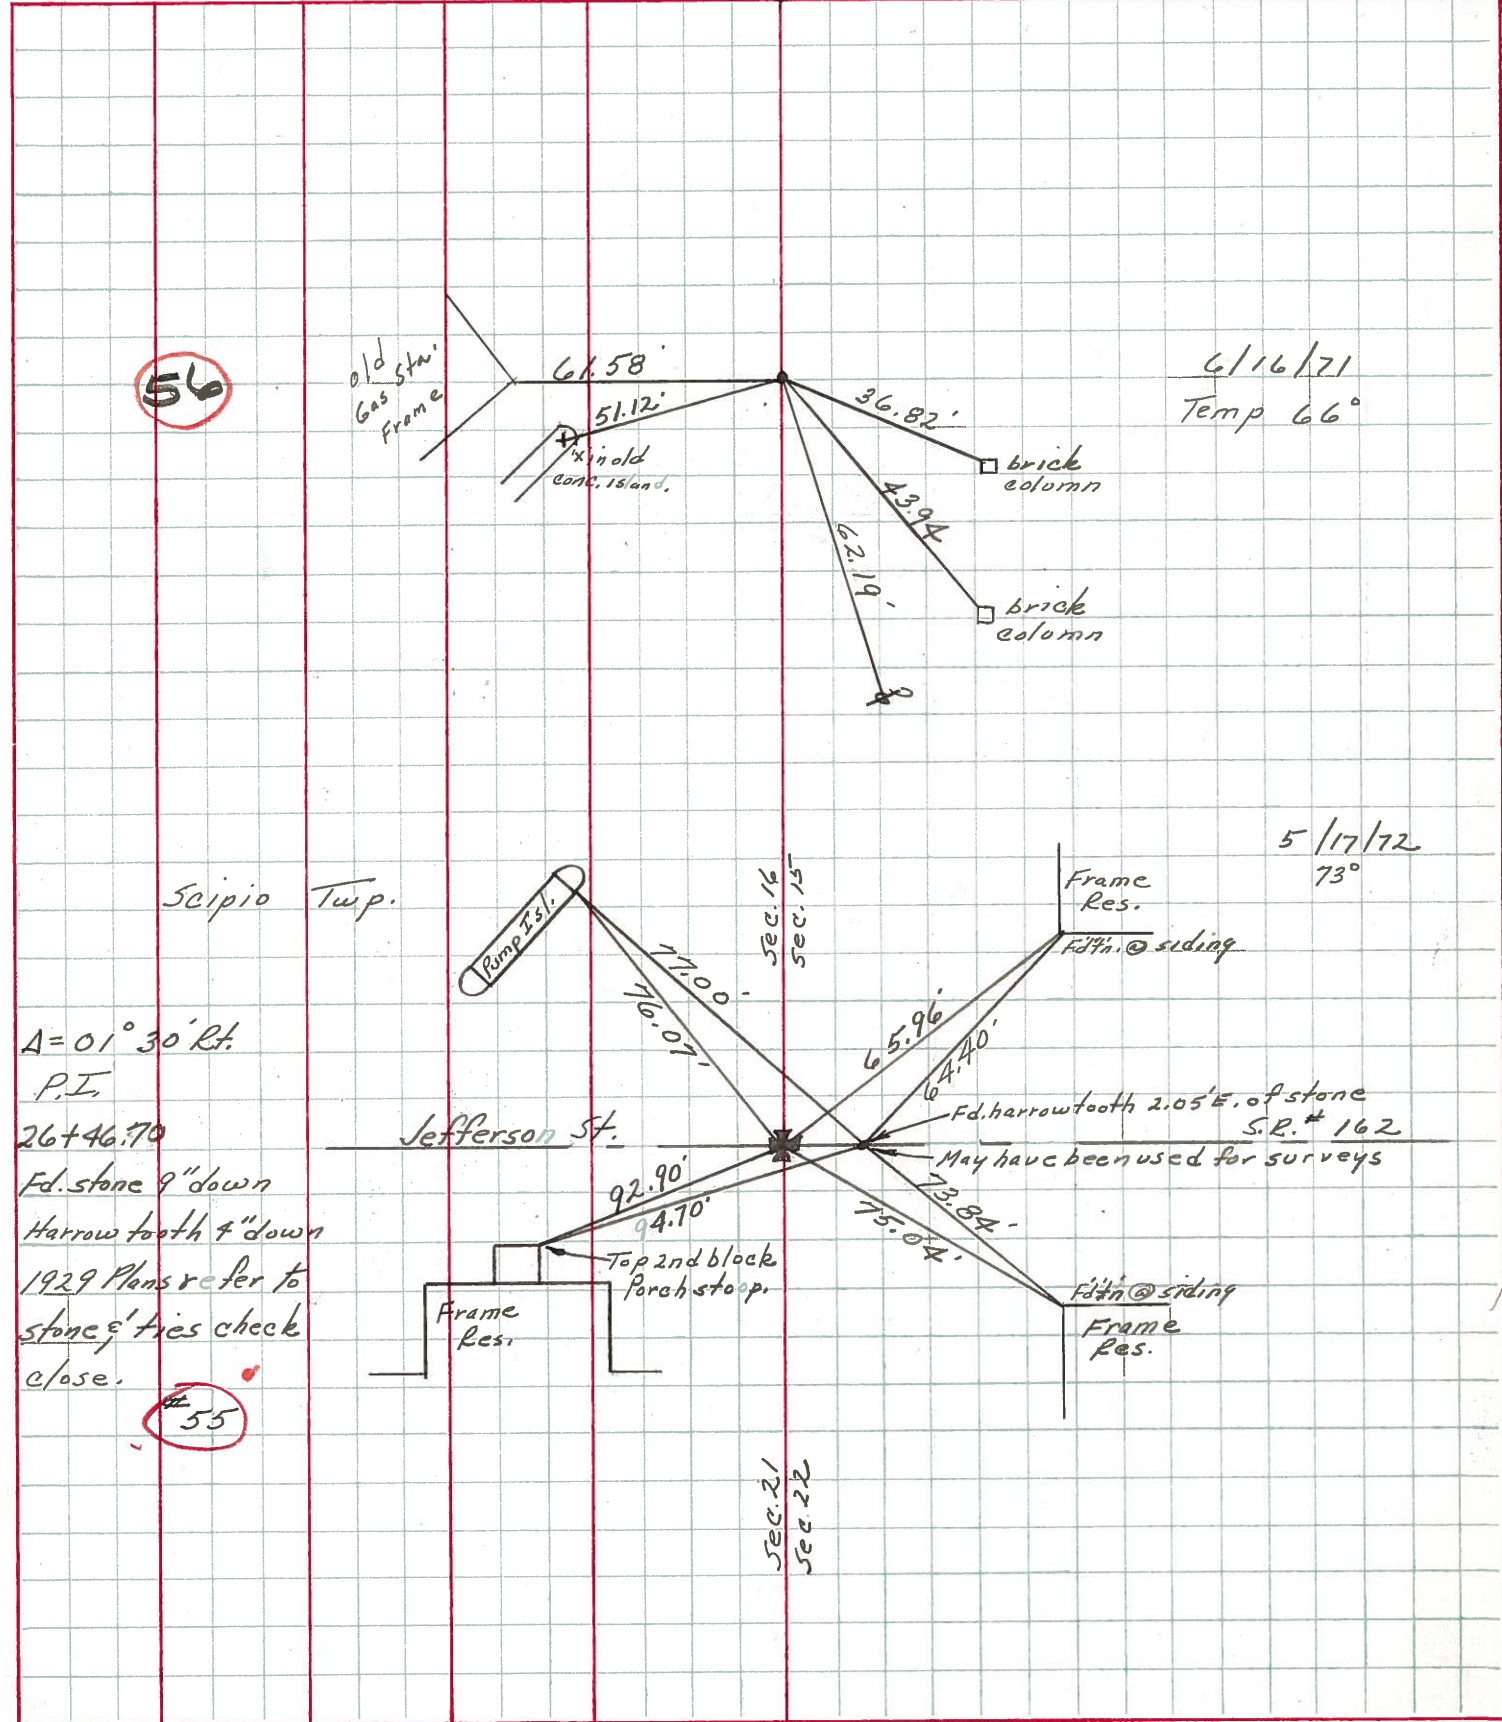 56
old
Gas Sta.
Frame
61.58'
51.12'
'x' in old
conc. island.
36.82'
43.94
62.19'
brick
column
brick
column
6/16/71
Temp 66°
5/17/72
73°
Scipio Twp.
Pump Isl.
Sec. 16
Sec. 15
Frame
Res.
Fdt'n. @ siding
77.00'
76.07'
65.96'
64.40'
Δ = 01° 30' Rt.
P.I.
26+46.70
Fd. stone 9" down
Harrow tooth 4" down
1929 Plans refer to
stone & ties check
close.
#55
Jefferson St.
Fd. harrow tooth 2.05' E. of stone
S.R. # 162
May have been used for surveys
92.90'
94.70'
73.84'
75.04'
Top 2nd block
Porch stoop.
Frame
Res.
Fdt'n @ siding
Frame
Res.
Sec. 21
Sec. 22